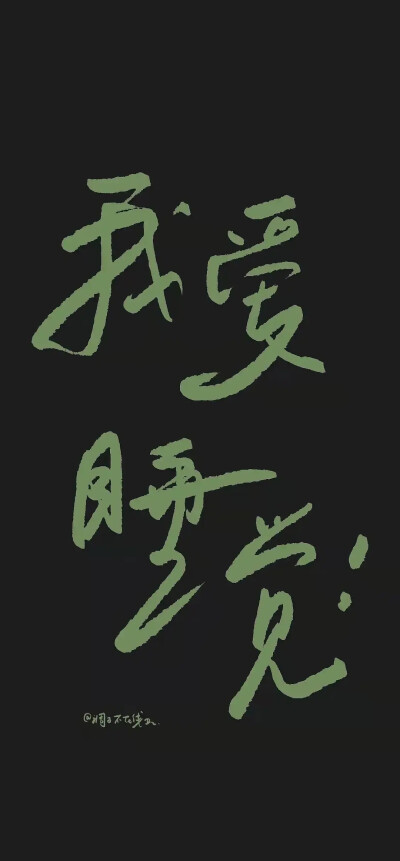 我爱
睡觉!